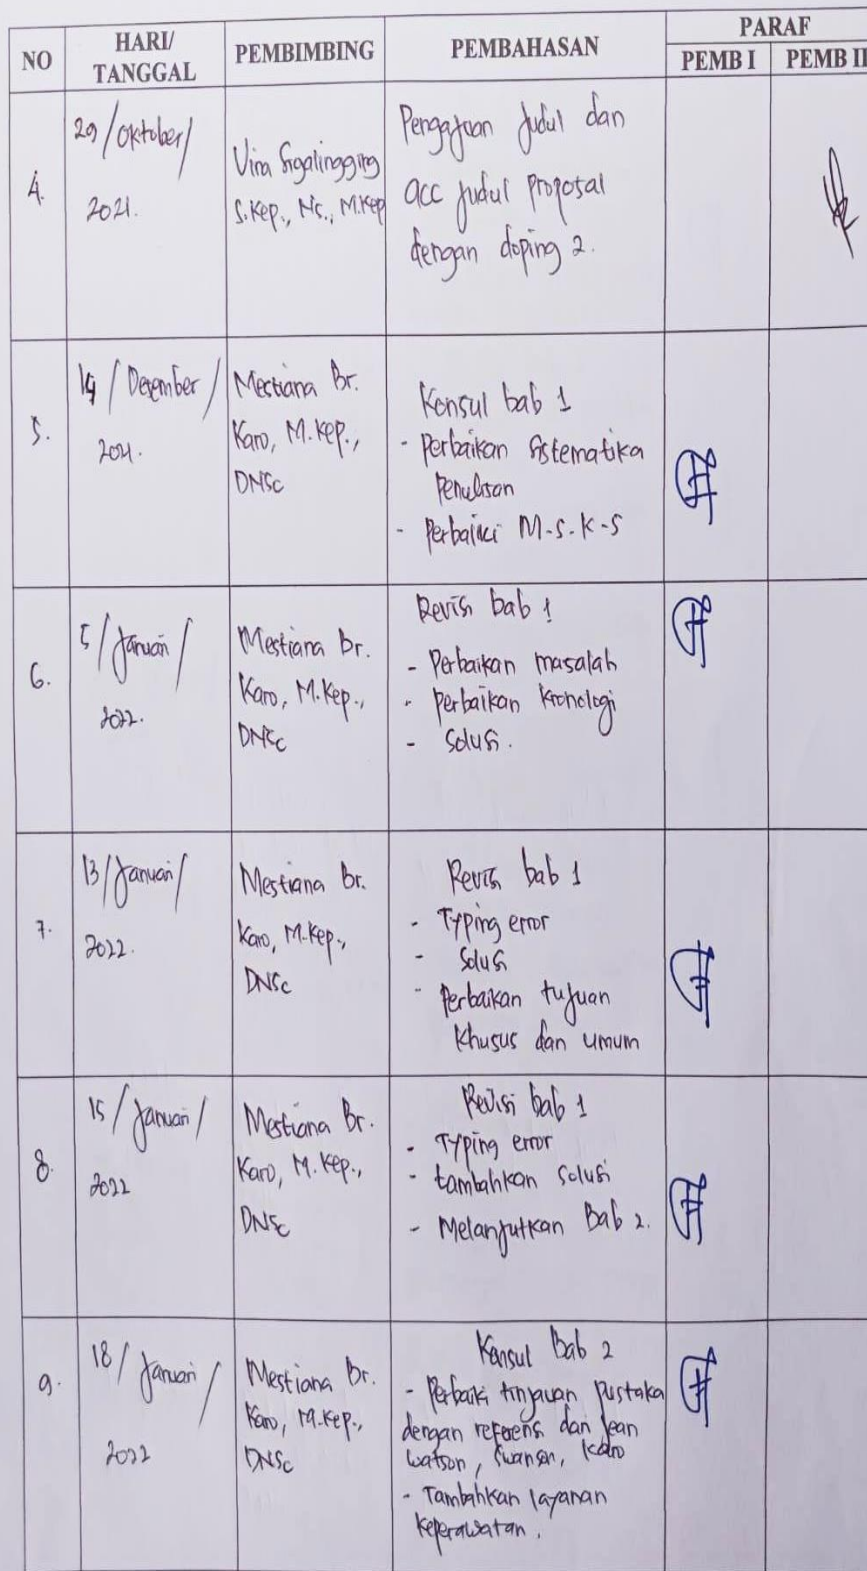 NO HARI/ TANGGAL PEMBIMBING PEMBAHASAN PARAF
PEMB I PEMB II
4.
29/Oktober/
2021.
Vina Sigalingging
S.Kep., Ns., M.Kep
Pengajuan judul dan
acc judul proposal
dengan doping 2.
5.
14/Desember/
2021.
Mestiana Br.
Karo, M.Kep.,
DNSc
Konsul bab 1
- Perbaikan Sistematika
Penulisan
- Perbaiki M-S-K-S
6.
5/Januari/
2022.
Mestiana Br.
Karo, M.Kep.,
DNSc
Revisi bab 1
- Perbaikan masalah
- Perbaikan kronologi
- Solusi.
7.
13/Januari/
2022.
Mestiana Br.
Karo, M.Kep.,
DNSc
Revisi bab 1
- Typing error
- Solusi
- Perbaikan tujuan
khusus dan umum
8.
15/Januari/
2022
Mestiana Br.
Karo, M.Kep.,
DNSc
Revisi bab 1
- Typing error
- tambahkan solusi
- Melanjutkan Bab 2.
9.
18/Januari/
2022
Mestiana Br.
Karo, M.Kep.,
DNSc
Konsul Bab 2
- Perbaiki tinjauan pustaka
dengan referensi dan jean
watson, swanson, karo
- Tambahkan layanan
keperawatan.